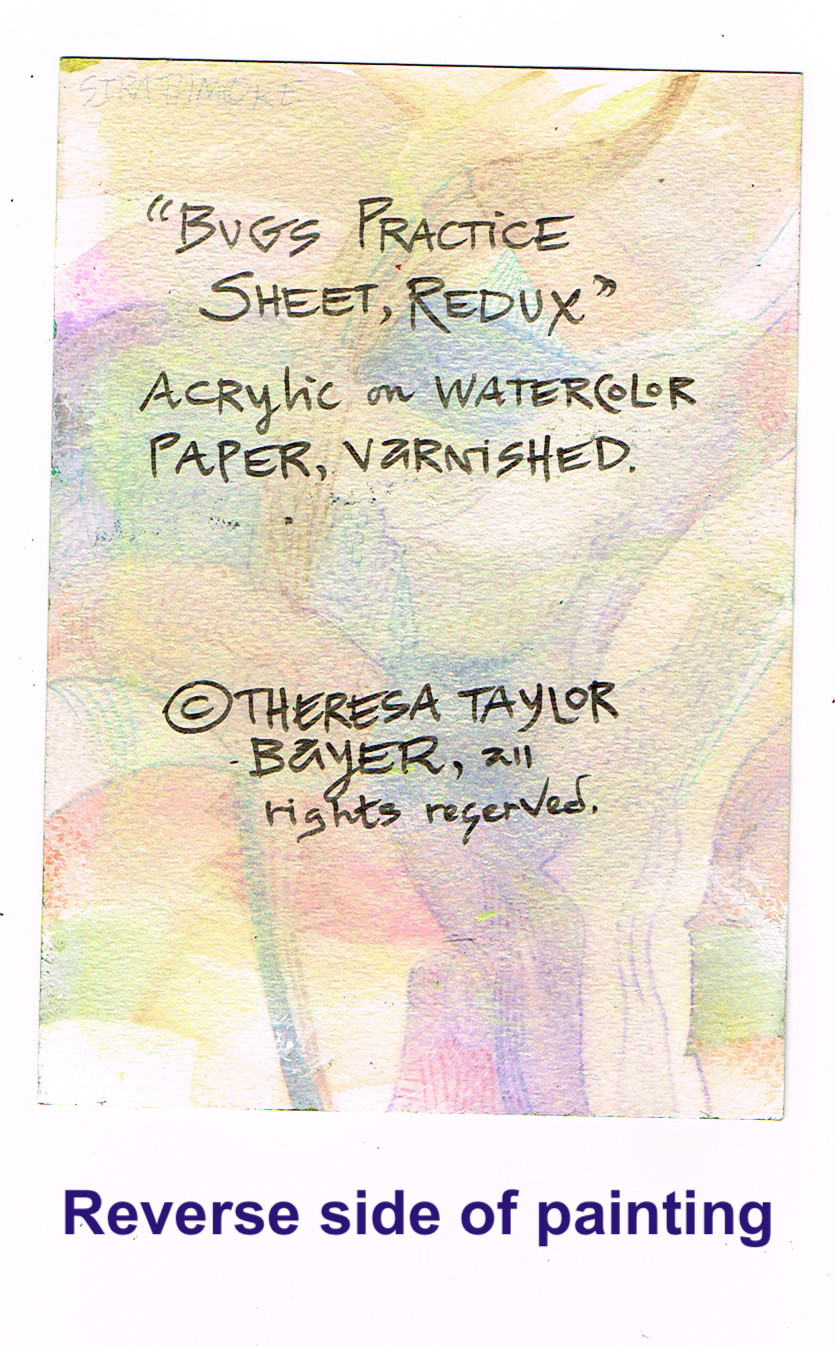 STRATHMORE
"BUGS PRACTICE
SHEET, REDUX"
ACRYLIC on WATERCOLOR
PAPER, VARNISHED.
© THERESA TAYLOR
BAYER, all
rights reserved.
Reverse side of painting